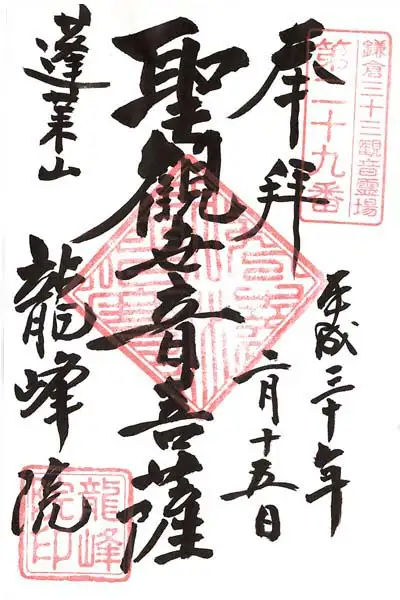 鎌倉三十三觀音靈場
第二十九番
奉拝
平成三十年
六月十五日
聖觀世音菩薩
蓬莱山
龍峰院
龍峰院印